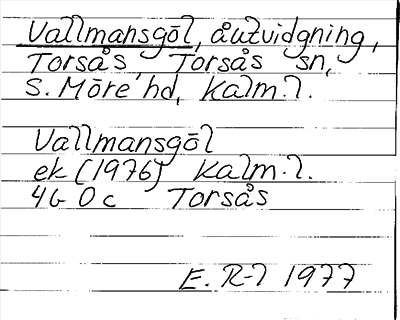 Vallmansgöl, åutvidgning,
Torsås, Torsås sn,
S. Möre hd, Kalm.l.
Vallmansgöl
ek (1976) Kalm.l.
4G 0c Torsås
E. R-l 1977